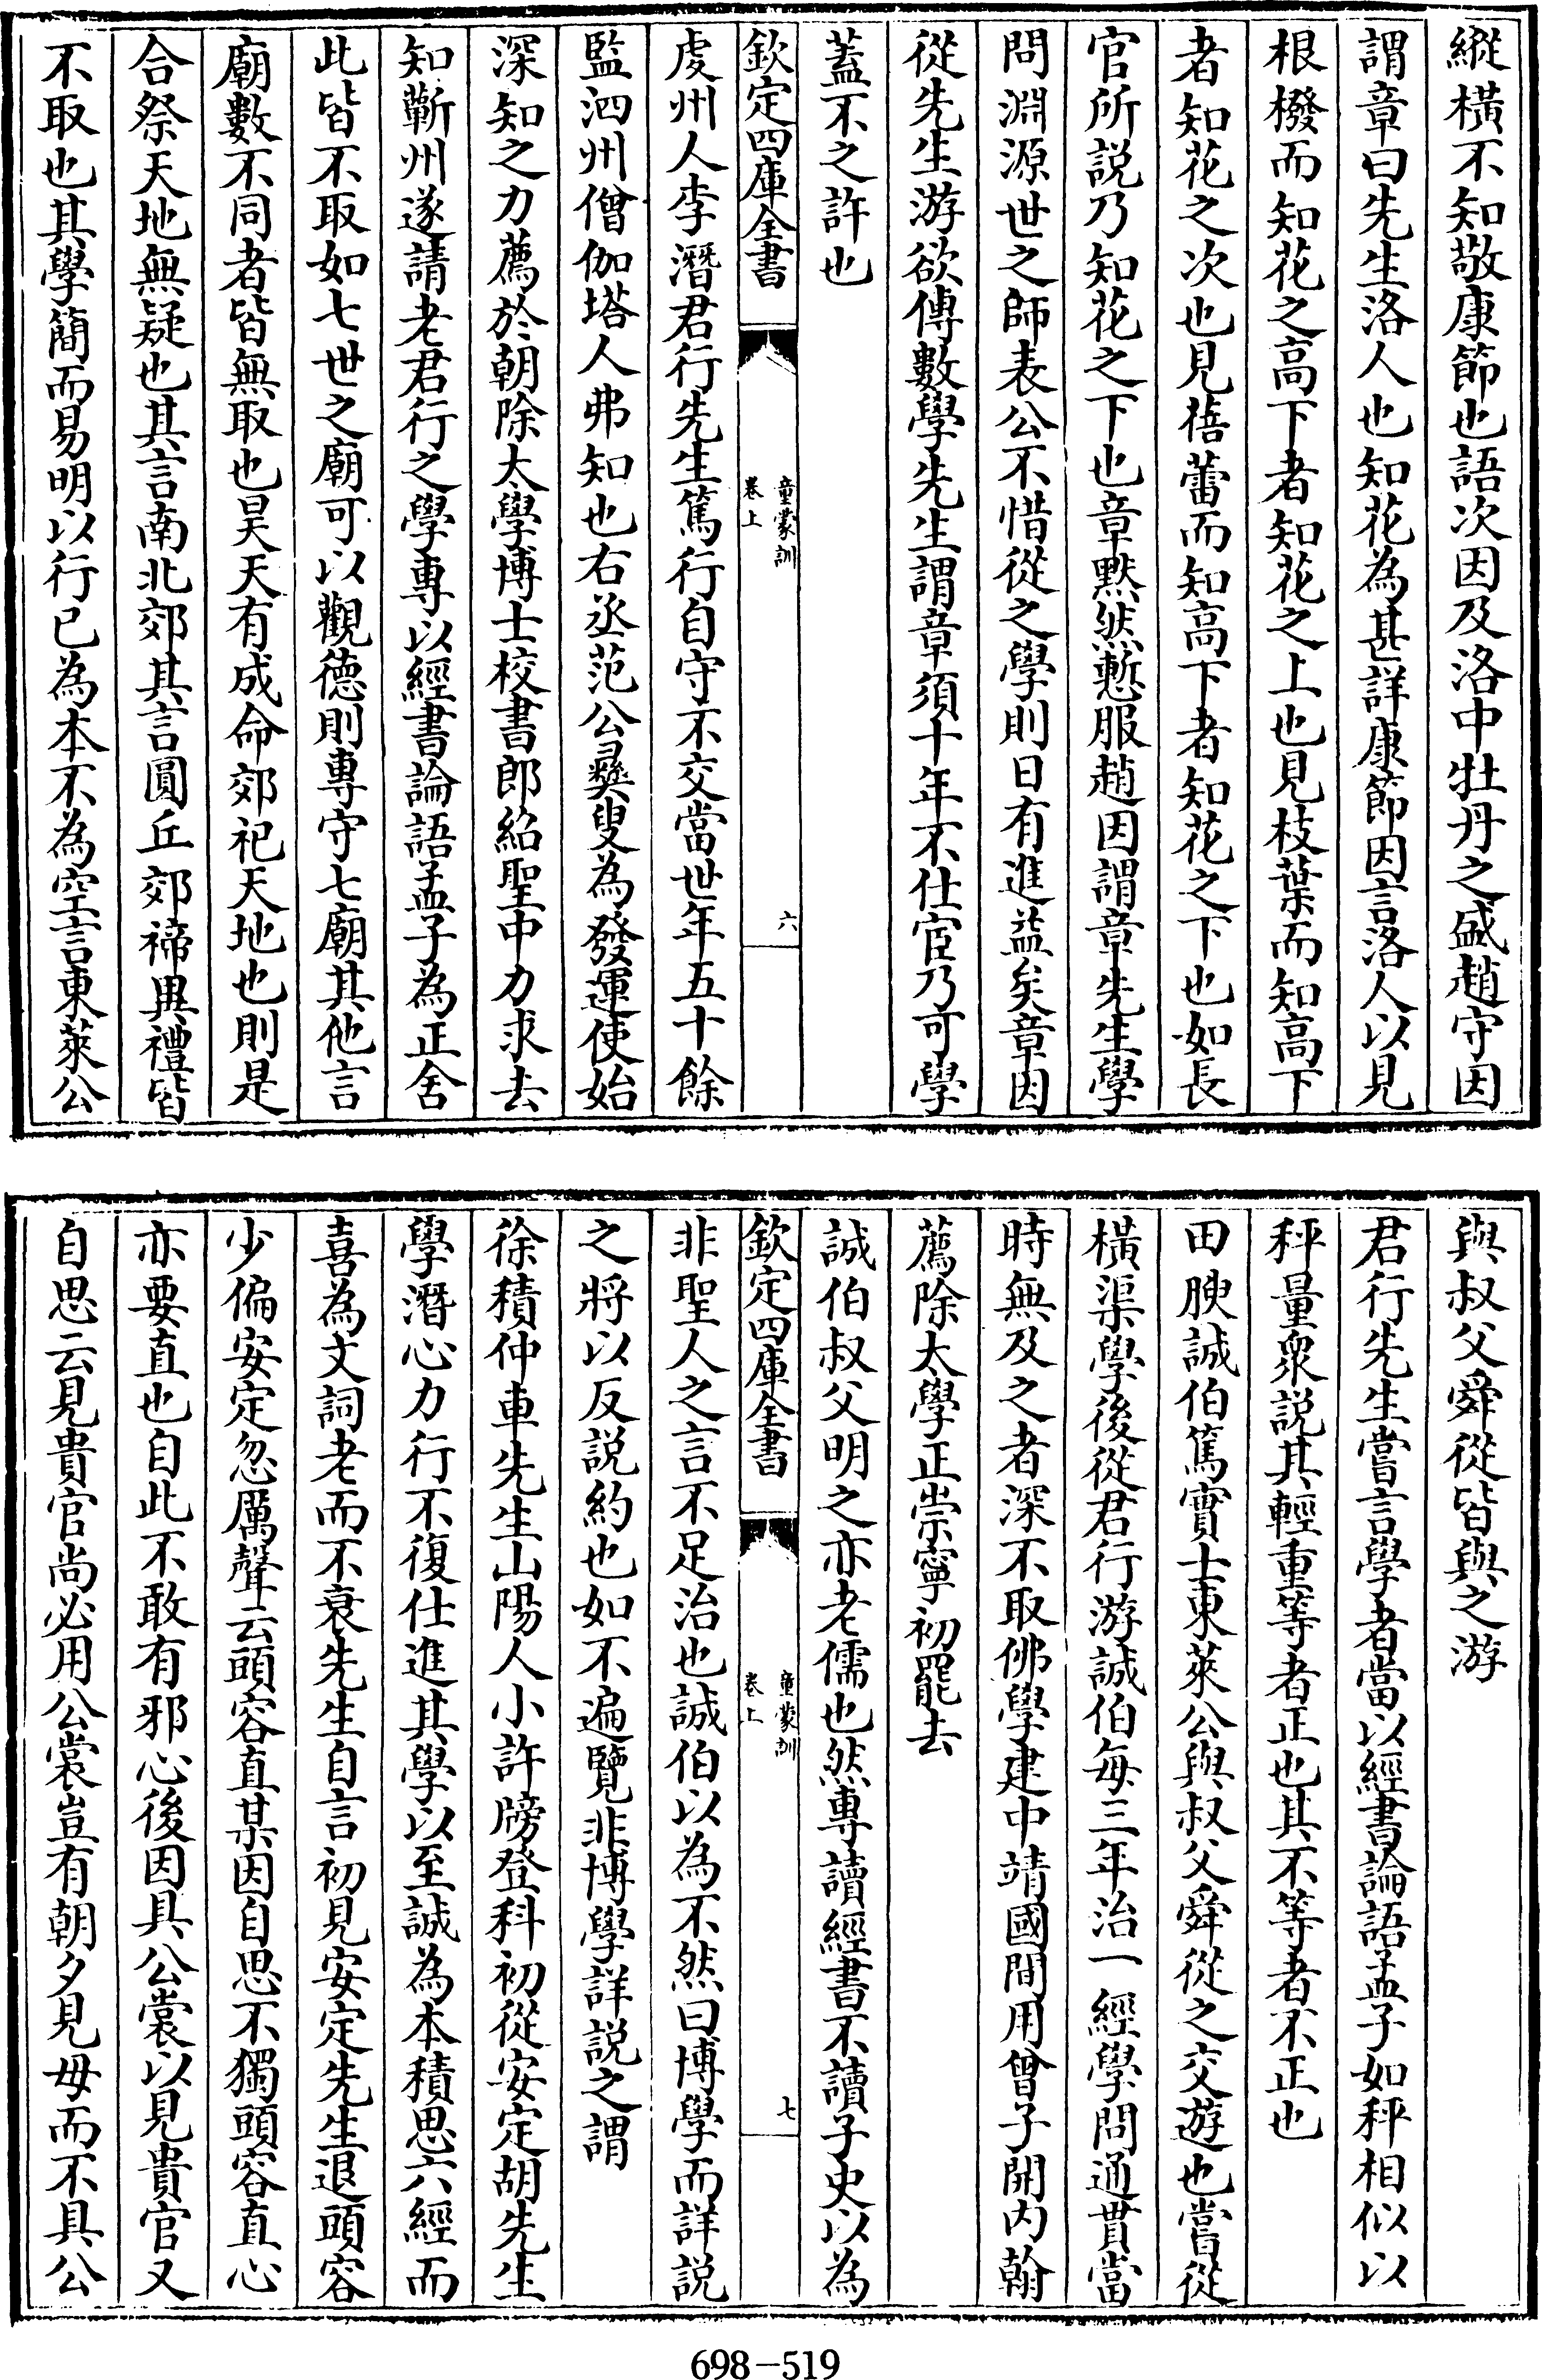 縱橫不知敬康節也語次因及洛中牡丹之盛趙守因
謂章曰先生洛人也知花為甚詳康節因言洛人以見
根橃而知花之高下者知花之上也見枝葉而知高下
者知花之次也見蓓蕾而知高下者知花之下也如長
官所說乃知花之下也章黙然慙服趙因謂章先生學
問淵源世之師表公不惜從之學則日有進益矣章因
從先生游欲傳數學先生謂章須十年不仕宦乃可學
蓋不之許也
欽定四庫全書
童蒙訓
卷上
六
虔州人李潛君行先生篤行自守不交當世年五十餘
監泗州僧伽塔人弗知也右丞范公彞叟為發運使始
深知之力薦於朝除太學博士校書郎紹聖中力求去
知蘄州遂請老君行之學專以經書論語孟子為正舍
此皆不取如七世之廟可以觀德則專守七廟其他言
廟數不同者皆無取也昊天有成命郊祀天地也則是
合祭天地無疑也其言南北郊其言圓丘郊禘異禮皆
不取也其學簡而易明以行已為本不為空言東萊公
與叔父舜從皆與之游
君行先生嘗言學者當以經書論語孟子如秤相似以
秤量衆說其輕重等者正也其不等者不正也
田腴誠伯篤實士東萊公與叔父舜從之交遊也嘗從
橫渠學後從君行游誠伯每三年治一經學問通貫當
時無及之者深不取佛學建中靖國間用曾子開内翰
薦除太學正崇寧初罷去
誠伯叔父明之亦老儒也然專讀經書不讀子史以為
欽定四庫全書
童蒙訓
卷上
七
非聖人之言不足治也誠伯以為不然曰博學而詳說
之將以反說約也如不遍覽非博學詳說之謂
徐積仲車先生山陽人小許牓登科初從安定胡先生
學潛心力行不復仕進其學以至誠為本積思六經而
喜為文詞老而不衰先生自言初見安定先生退頭容
少偏安定忽厲聲云頭容直某因自思不獨頭容直心
亦要直也自此不敢有邪心後因具公裳以見貴官又
自思云見貴官尚必用公裳豈有朝夕見母而不具公
698-519